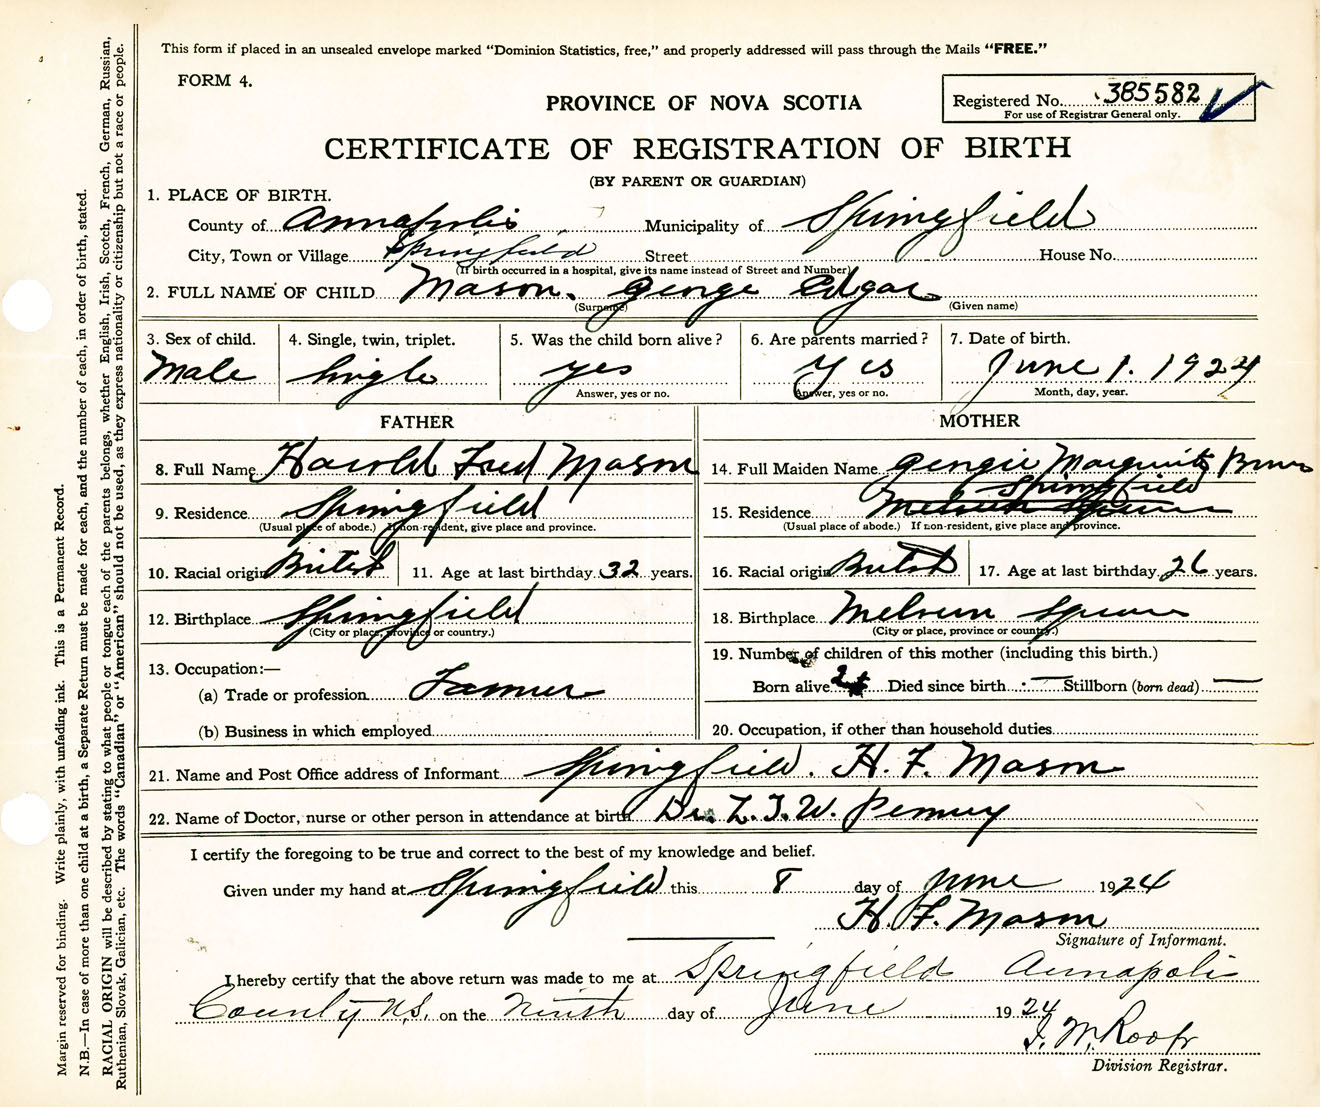 This form if placed in an unsealed envelope marked "Dominion Statistics, free," and properly addressed will pass through the Mails "FREE."
FORM 4.
PROVINCE OF NOVA SCOTIA
Registered No. 385582
For use of Registrar General only.
CERTIFICATE OF REGISTRATION OF BIRTH
(BY PARENT OR GUARDIAN)
1. PLACE OF BIRTH.
County of Annapolis Municipality of Springfield
City, Town or Village Springfield Street House No.
(If birth occurred in a hospital, give its name instead of Street and Number)
2. FULL NAME OF CHILD Mason. George Edgar
(Surname) (Given name)
3. Sex of child. 4. Single, twin, triplet. 5. Was the child born alive? 6. Are parents married? 7. Date of birth.
Male Single yes yes June 1. 1924
Answer, yes or no. Answer, yes or no. Month, day, year.
FATHER MOTHER
8. Full Name Harold Fred Mason 14. Full Maiden Name Margurite
Springfield
9. Residence Springfield 15. Residence Melvern Square
(Usual place of abode.) If non-resident, give place and province. (Usual place of abode.) If non-resident, give place and province.
10. Racial origin British 11. Age at last birthday 32 years. 16. Racial origin British 17. Age at last birthday 26 years.
12. Birthplace Springfield 18. Birthplace Melvern Square
(City or place, province or country.) (City or place, province or country.)
13. Occupation:— 19. Number of children of this mother (including this birth.)
(a) Trade or profession Farmer Born alive 2 Died since birth — Stillborn (born dead) —
(b) Business in which employed 20. Occupation, if other than household duties
21. Name and Post Office address of Informant Springfield. H. F. Mason
22. Name of Doctor, nurse or other person in attendance at birth Dr. L. W.
I certify the foregoing to be true and correct to the best of my knowledge and belief.
Given under my hand at Springfield this 8 day of June 1924
H. F. Mason
Signature of Informant.
I hereby certify that the above return was made to me at Springfield Annapolis
County N.S. on the Ninth day of June 1924
J. M. Roop
Division Registrar.
Margin reserved for binding. Write plainly, with unfading ink. This is a Permanent Record.
N.B.—In case of more than one child at a birth, a Separate Return must be made for each, and the number of each, in order of birth, stated.
RACIAL ORIGIN will be described by stating to what people or tongue each of the parents belongs, whether English, Irish, Scotch, French, German, Russian,
Ruthenian, Slovak, Galician, etc. The words "Canadian" or "American" should not be used, as they express nationality or citizenship but not a race or people.